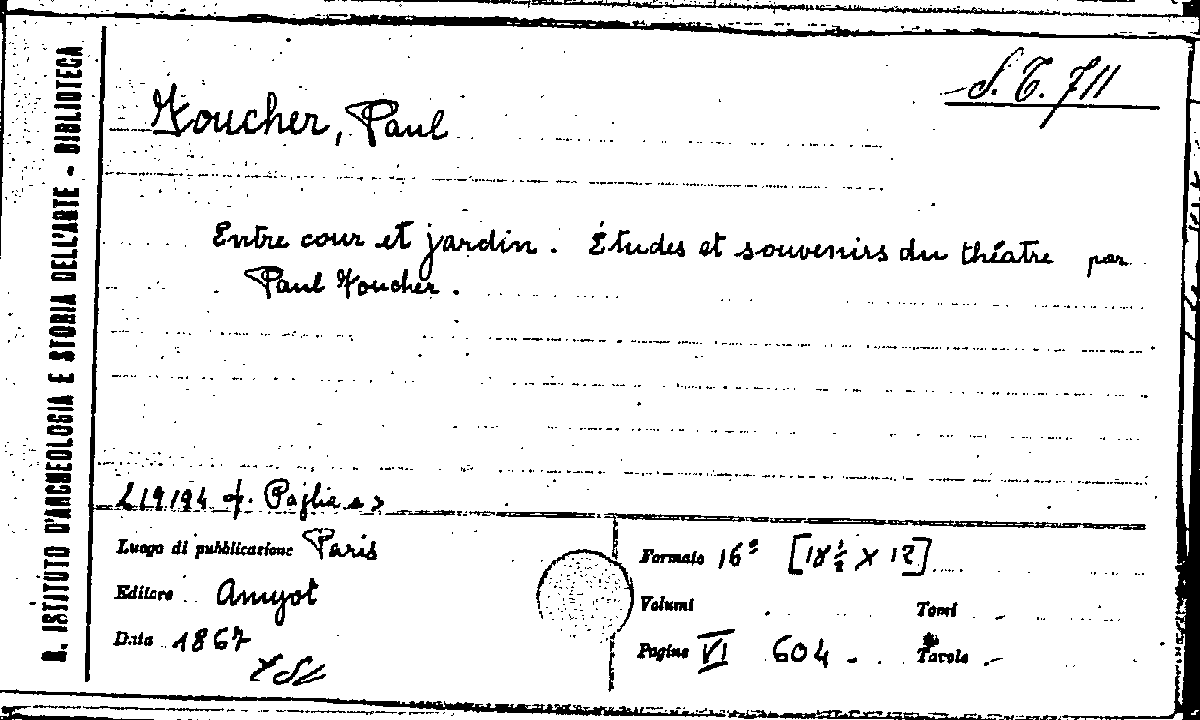 S. T. 711
Foucher, Paul
Entre cour et jardin. Études et souvenirs du théatre par
Paul Foucher.
R. ISTITUTO D'ARCHEOLOGIA E STORIA DELL'ARTE - BIBLIOTECA
L19194
Luogo di pubblicazione Paris
Editore Amyot
Data 1867
Formato 16° [18 ½ X 12]
Volumi Tomi -
Pagine VI 604 - Tavole -